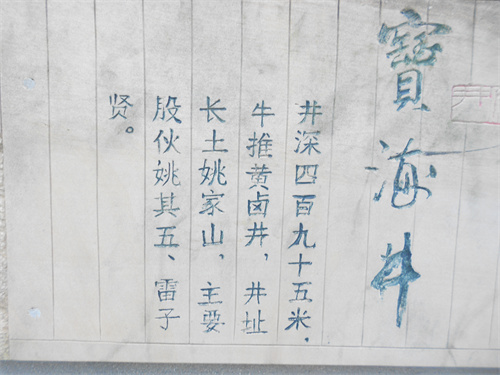 寶海井
井深四百九十五米，
牛推黄卤井，井址
长土姚家山，主要
股伙姚其五、雷子
贤。